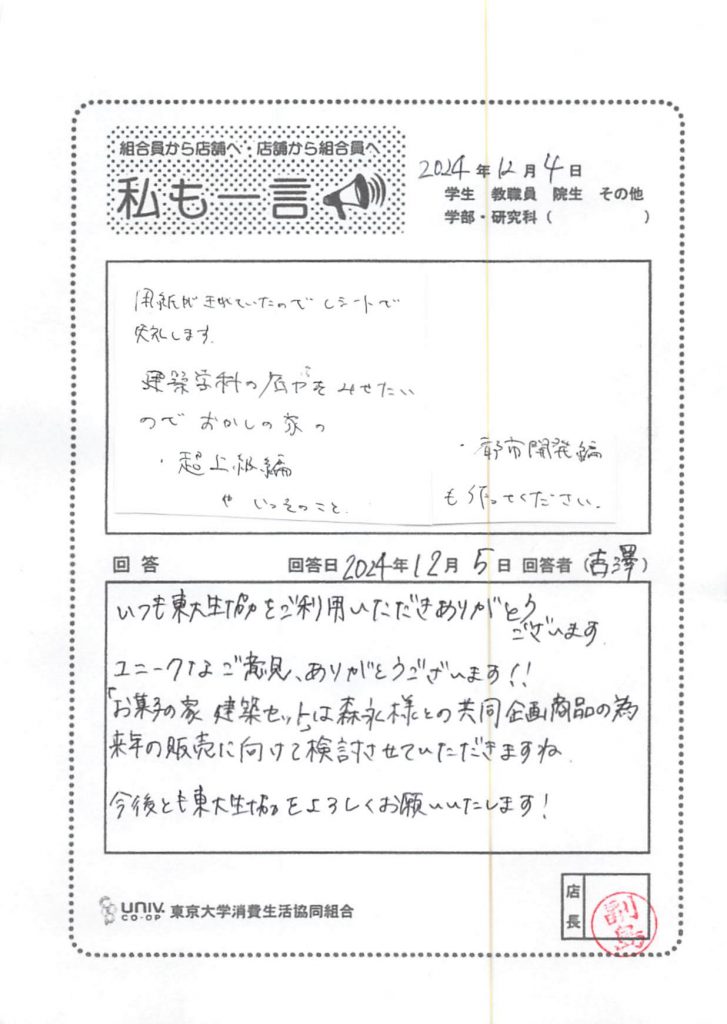 組合員から店舗へ・店舗から組合員へ
私も一言
2024年12月4日
学生 教職員 院生 その他
学部・研究科（ ）
用紙がきれていたのでレシートで
失礼します。
建築学科の底力をみせたい
のでおかしの家の
・超上級編
や いっそのこと、
・都市開発編
も作ってください。
回答
回答日 2024年12月5日 回答者（古澤）
いつも東大生協をご利用いただきありがとう
ございます。
ユニークなご意見、ありがとうございます!!
「お菓子の家 建築セット」は森永様との共同企画商品の為
来年の販売に向けて検討させていただきますね。
今後とも東大生協をよろしくお願いいたします!
UNIV.
CO-OP
東京大学消費生活協同組合
店長
副島